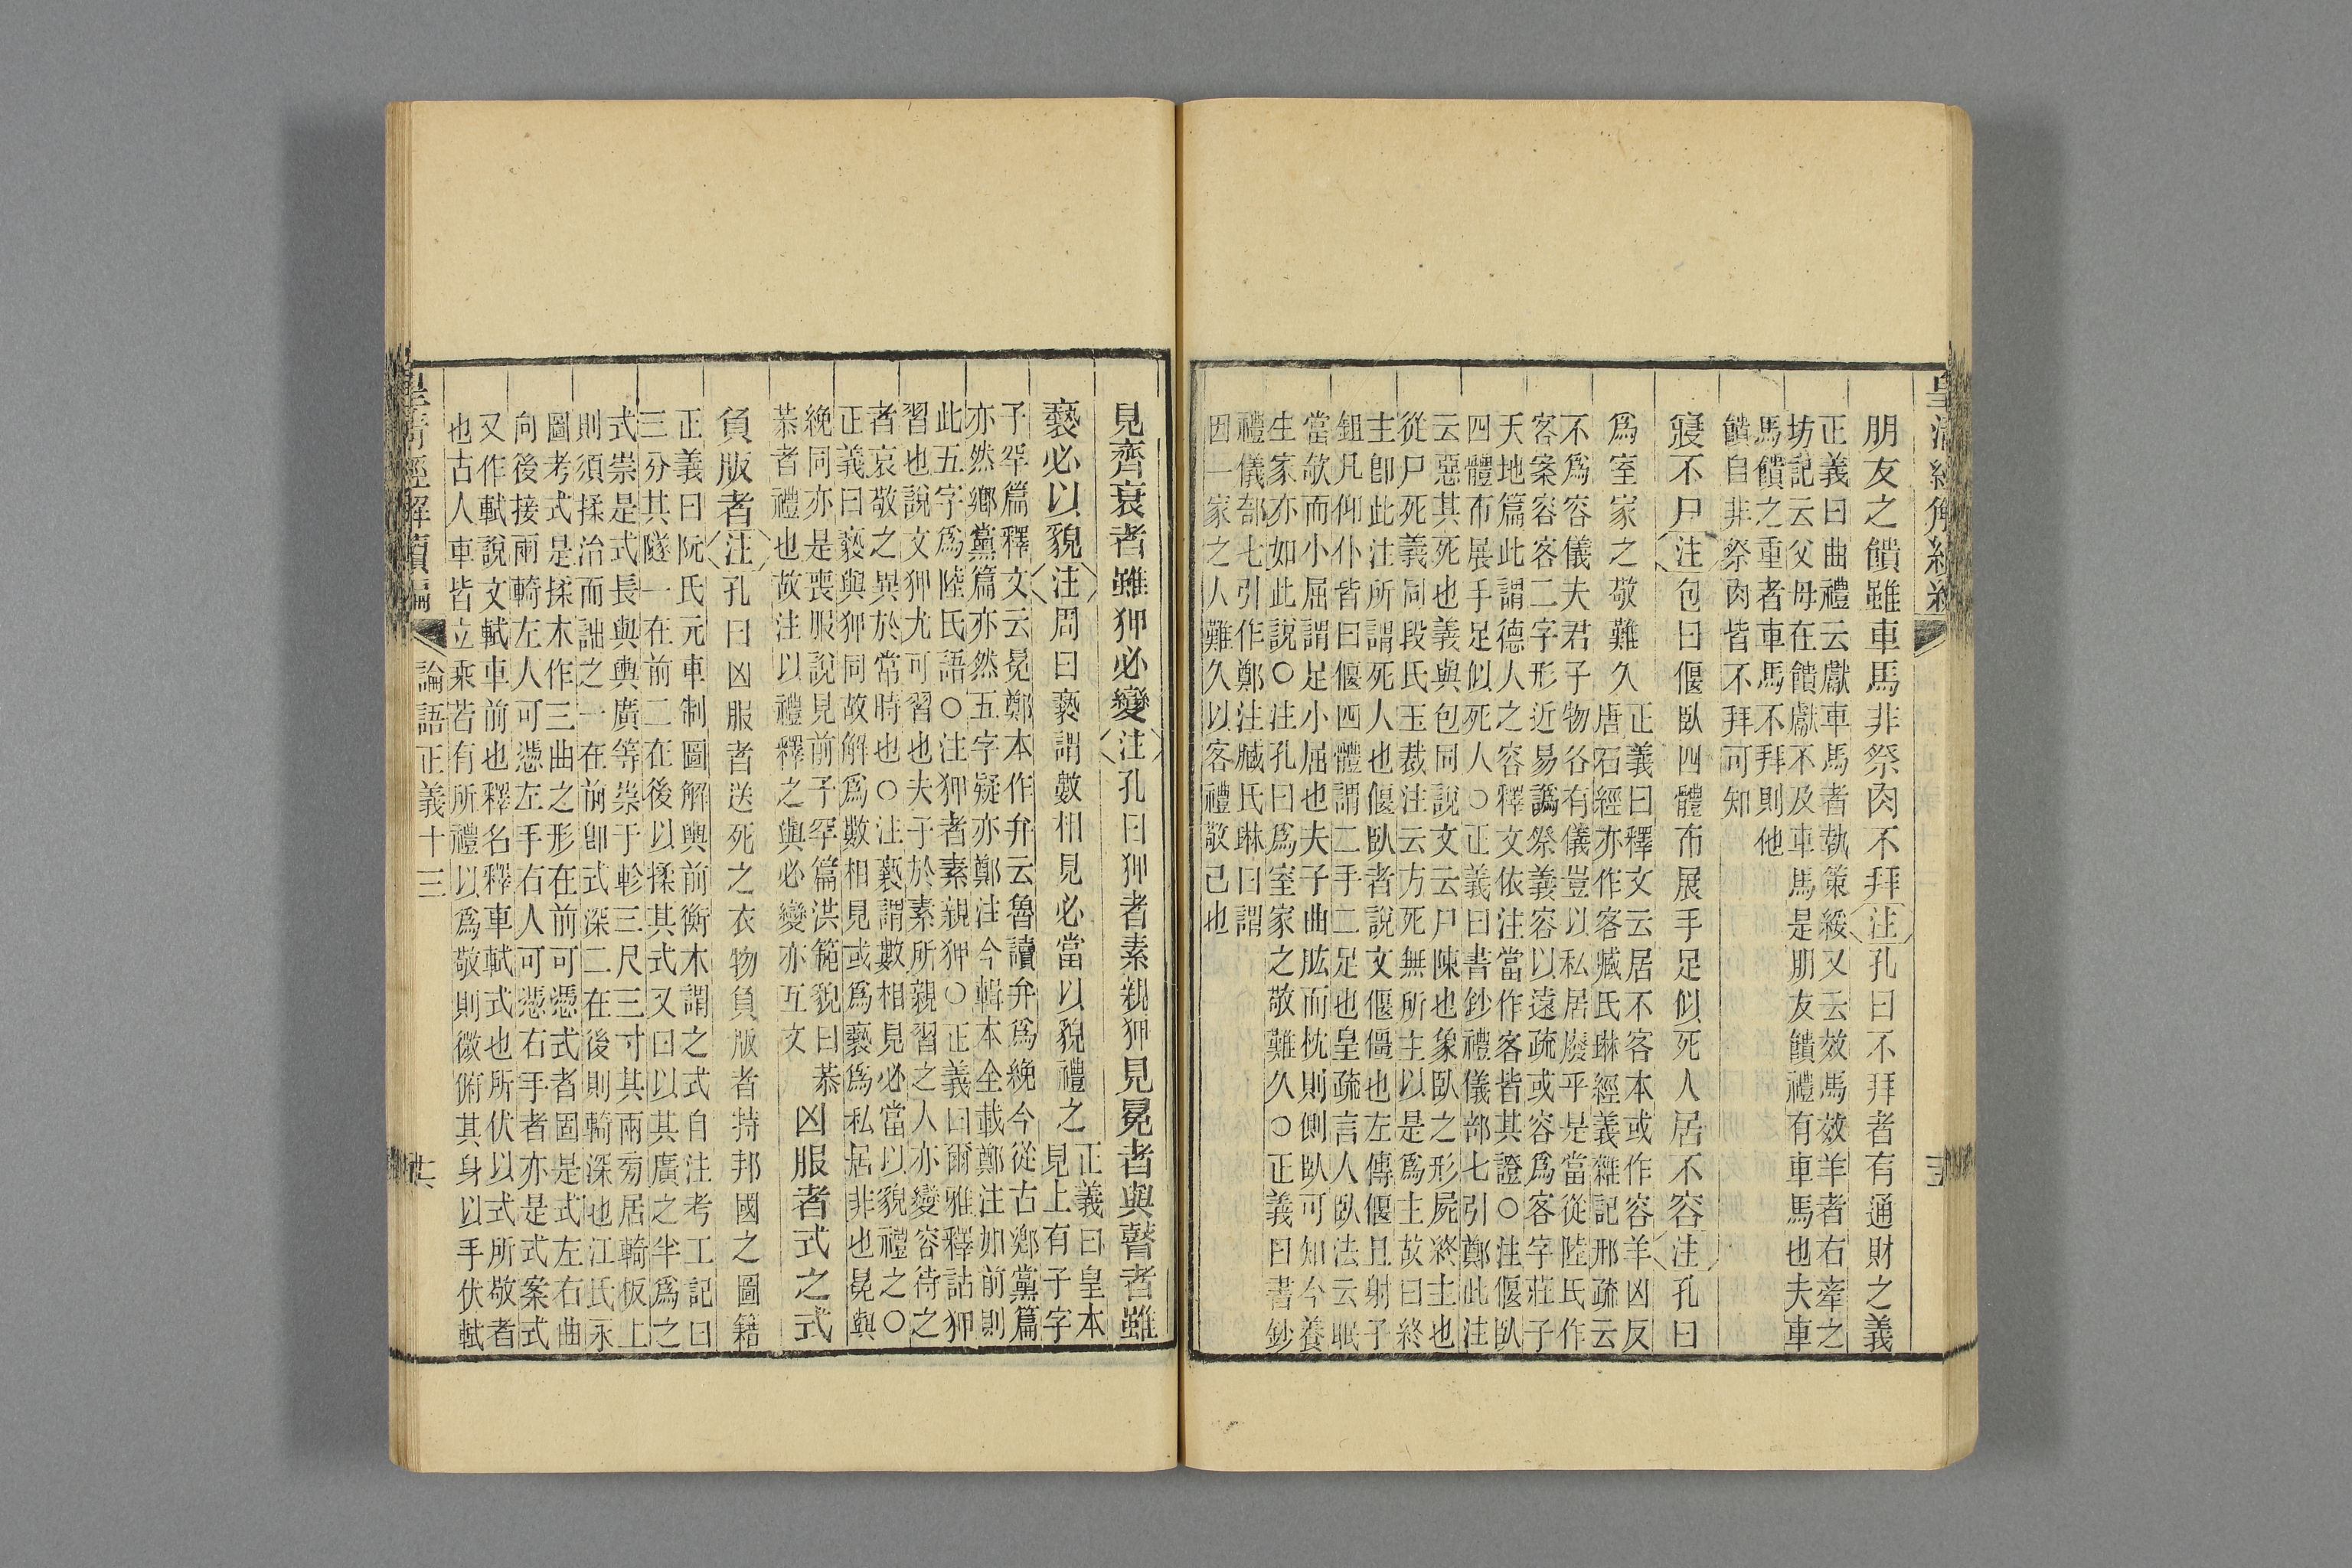 朋友之饋雖車馬非祭肉不拜注孔曰不拜者有通財之義
正義曰曲禮云獻車馬者執策綏又云效馬效羊者右牽之
坊記云父母在饋獻不及車馬是朋友饋禮有車馬也夫車
馬饋之重者車馬不拜則他
饋自非祭肉皆不拜可知
寢不尸注包曰偃臥四體布展手足似死人居不容注孔曰
爲室家之敬難久
正義曰釋文云居不客本或作容羊凶反
唐石經亦作客臧氏琳經義雜記邢疏云
不爲容儀夫君子物各有儀豈以私居廢乎是當從陸氏作
客案容客二字形近易譌祭義容以遠疏或容爲客字莊子
天地篇此謂德人之容釋文依注當作客皆其證○注偃臥
四體布展手足似死人○正義曰書鈔禮儀部七引鄭此注
云惡其死也義與包同說文云尸陳也象臥之形屍終主也
從尸死義同段氏玉裁注云方死無所主以是爲主故曰終
主卽此注所謂死人也偃臥者說文偃僵也左傳偃且射子
鉏凡仰仆皆曰偃四體謂二手二足也皇疏言人臥法云眠
當欹而小屈謂足小屈也夫子曲肱而枕則側臥可知今養
生家亦如此說○注孔曰爲室家之敬難久○正義曰書鈔
禮儀部七引作鄭注臧氏琳曰謂
因一家之人難久以客禮敬己也
見齊衰者雖狎必變注孔曰狎者素親狎見冕者與瞽者雖
褻必以貌注周曰褻謂數相見必當以貌禮之
正義曰皇本
見上有子字
子罕篇釋文云冕鄭本作弁云魯讀弁爲絻今從古鄉黨篇
亦然鄉黨篇亦然五字疑亦鄭注今輯本全載鄭注如前則
此五字爲陸氏語○注狎者素親狎○正義曰爾雅釋詁狎
習也說文狎尤可習也夫子於素所親習之人亦變容待之
者哀敬之異於常時也○注褻謂數相見必當以貌禮之○
正義曰褻與狎同故解爲數相見或爲褻爲私居非也冕與
絻同亦是喪服說見前子罕篇洪範貌曰恭
恭者禮也故注以禮釋之與必變亦互文
凶服者式之式
負版者注孔曰凶服者送死之衣物負版者持邦國之圖籍
正義曰阮氏元車制圖解輿前衡木謂之式自注考工記曰
三分其隧一在前二在後以揉其式又曰以其廣之半爲之
式崇是式長與輿廣等崇于軫三尺三寸其兩旁居輢板上
則須揉治而詘之一在前卽式深二在後則輢深也江氏永
圖考式是揉木作三曲之形在前可憑式者固是式左右曲
向後接兩輢左人可憑左手右人可憑右手者亦是式案式
又作軾說文軾車前也釋名釋車軾式也所伏以式所敬者
也古人車皆立乘若有所禮以爲敬則微俯其身以手伏軾
皇清經解續編
論語正義十三